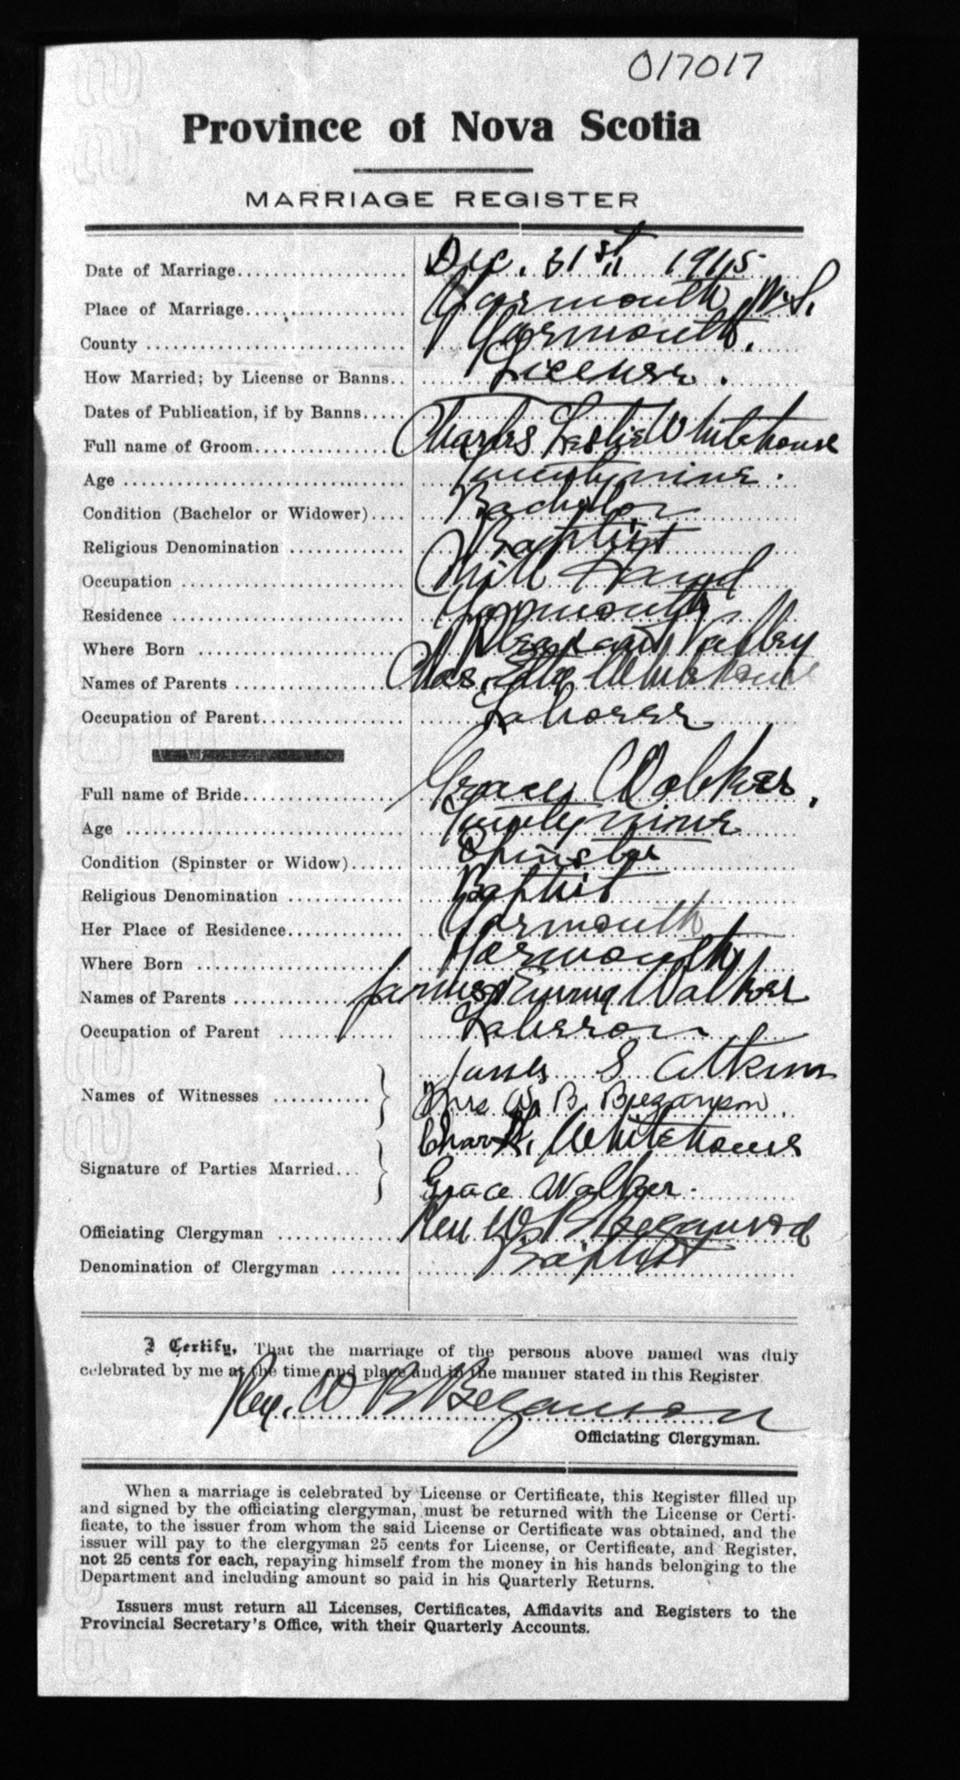 017017
Province of Nova Scotia
MARRIAGE REGISTER
Date of Marriage Dec. 31st 1915
Place of Marriage Yarmouth N.S.
County Yarmouth.
How Married; by License or Banns License.
Dates of Publication, if by Banns
Full name of Groom Charles Leslie Whitehouse
Age Twenty nine.
Condition (Bachelor or Widower) Bachelor
Religious Denomination Baptist
Occupation Mill Hand
Residence Yarmouth
Where Born Pleasant Valley
Names of Parents Chas. Whitehouse
Occupation of Parent Laborer
Full name of Bride Grace Walker,
Age Twenty nine
Condition (Spinster or Widow) Spinster
Religious Denomination Baptist
Her Place of Residence Yarmouth
Where Born Yarmouth
Names of Parents James Emma Walker
Occupation of Parent Laberor
Names of Witnesses James S Atkins
Mrs W. B. Bezanson
Signature of Parties Married Whitehouse
Grace Walker.
Officiating Clergyman Rev W. B Bezanson
Denomination of Clergyman Baptist
I Certify, That the marriage of the persons above named was duly
celebrated by me at the time and place and in the manner stated in this Register
Rev. W B Bezanson
Officiating Clergyman.
When a marriage is celebrated by License or Certificate, this Register filled up
and signed by the officiating clergyman, must be returned with the License or Certi-
ficate, to the issuer from whom the said License or Certificate was obtained, and the
issuer will pay to the clergyman 25 cents for License, or Certificate, and Register,
not 25 cents for each, repaying himself from the money in his hands belonging to the
Department and including amount so paid in his Quarterly Returns.
Issuers must return all Licenses, Certificates, Affidavits and Registers to the
Provincial Secretary's Office, with their Quarterly Accounts.